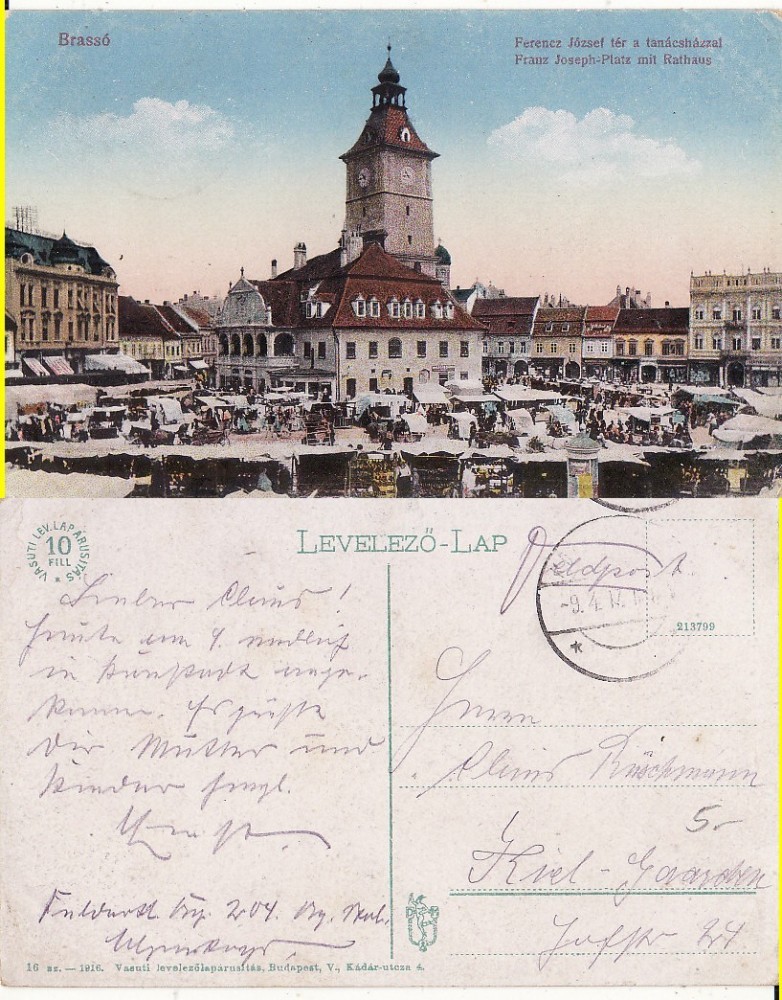 Brassó
Ferencz József tér a tanácsházzal
Franz Joseph-Platz mit Rathaus
VASUTI LEV. LAP ÁRUSITÁS *
10
FILL
LEVELEZŐ-LAP
Feldpost.
-9.4.17.
213799
Lieber Claus!
Heute am 4. endlich
in Kronstadt ange-
kommen. Es grüßt
Dir Mutter und
Kinder
Ernst
Herrn
Claus Rüschmann
5.-
Kiel-Gaarden
24
204.
16 sz. — 1916. Vasuti levelezőlapárusitás, Budapest, V., Kádár-utcza 4.